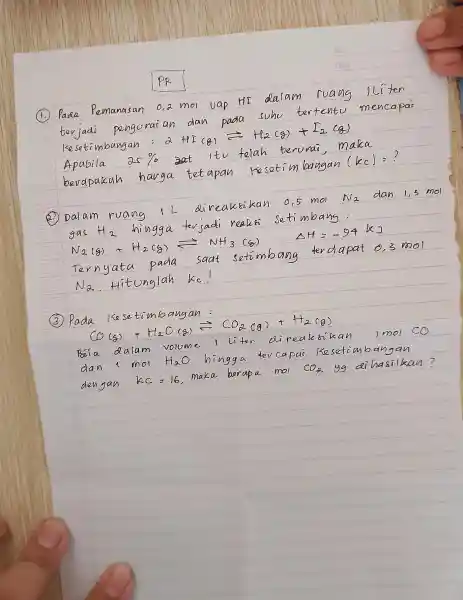 PR
① Pada Pemanasan 0,2 mol uap HI dalam ruang 1 Liter
terjadi penguraian dan pada suhu tertentu mencapai
Kesetimbangan : 2 HI (g) ⇌ H₂ (g) + I₂ (g)
Apabila 25 % zat itu telah terurai, maka
berapakah harga tetapan Kesetimbangan (Kc) = ?
② Dalam ruang 1 L direaksikan 0,5 mol N₂ dan 1,5 mol
gas H₂ hingga terjadi reaksi setimbang :
N₂ (g) + H₂ (g) ⇌ NH₃ (g) ΔH = -94 KJ
Ternyata pada saat setimbang terdapat 0,3 mol
N₂. Hitunglah Kc !
③ Pada Kesetimbangan :
CO (g) + H₂O (g) ⇌ CO₂ (g) + H₂ (g)
Bila dalam volume 1 Liter direaksikan 1 mol CO
dan 1 mol H₂O hingga tercapai Kesetimbangan
dengan Kc = 16, maka berapa mol CO₂ yg dihasilkan ?